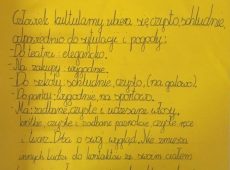 Człowiek kulturalny ubiera się czysto, schludnie,
odpowiednio do sytuacji i pogody:
- Do teatru: elegancko.
- Na zakupy: wygodnie.
- Do szkoły: schludnie, czysto, (na galowo).
- Do parku: wygodnie na sportowo.
- Ma: zadbane, czyste i uczesane włosy,
krótkie, czyste i zadbane paznokcie, czyste ręce
i twarz. Dba o swój wygląd. Nie zmusza
innych ludzi do kontaktu ze swoim ciałem